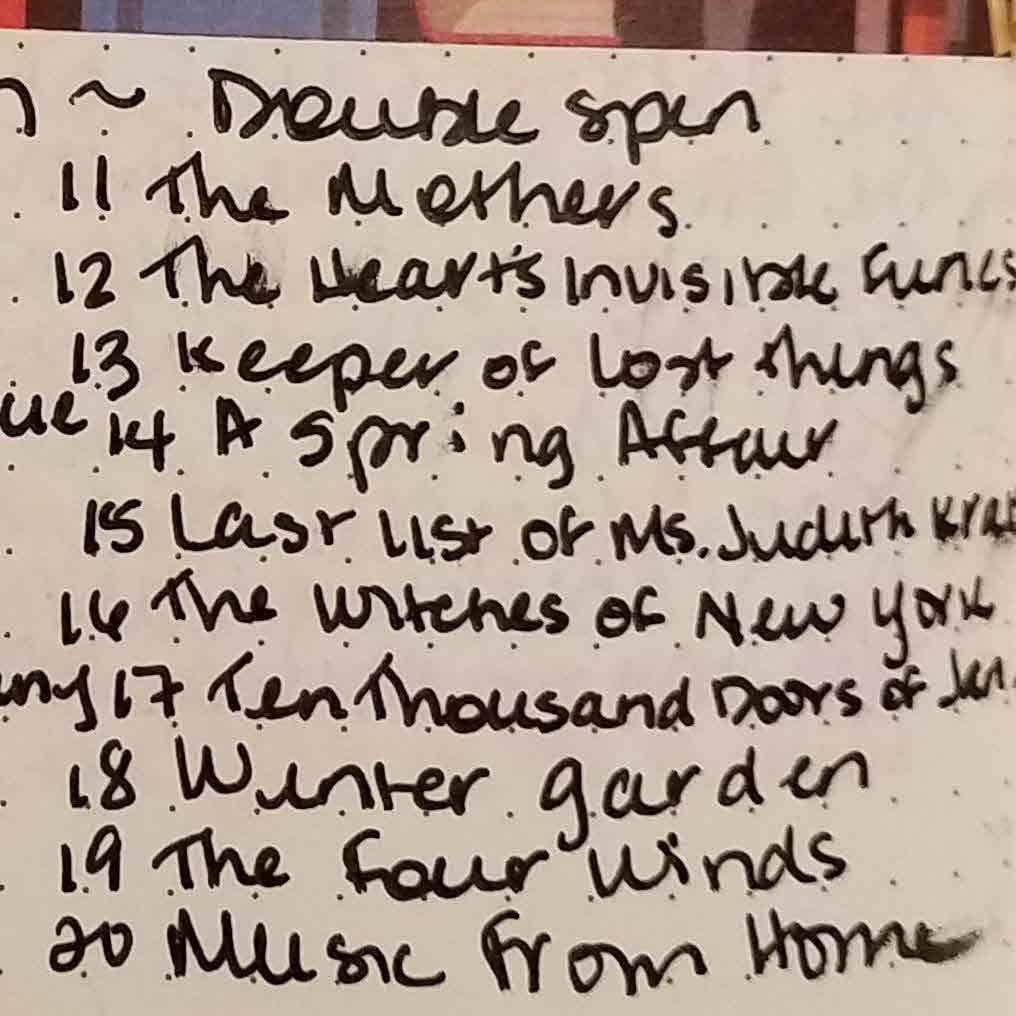 ~ Double Spin
11 The Mothers
12 The Heart's Invisible Furies
13 Keeper of Lost Things
14 A Spring Affair
15 Last List of Ms. Judith
16 The Witches of New York
17 Ten Thousand Doors of Jan.
18 Winter garden
19 The Four Winds
20 Music From Home